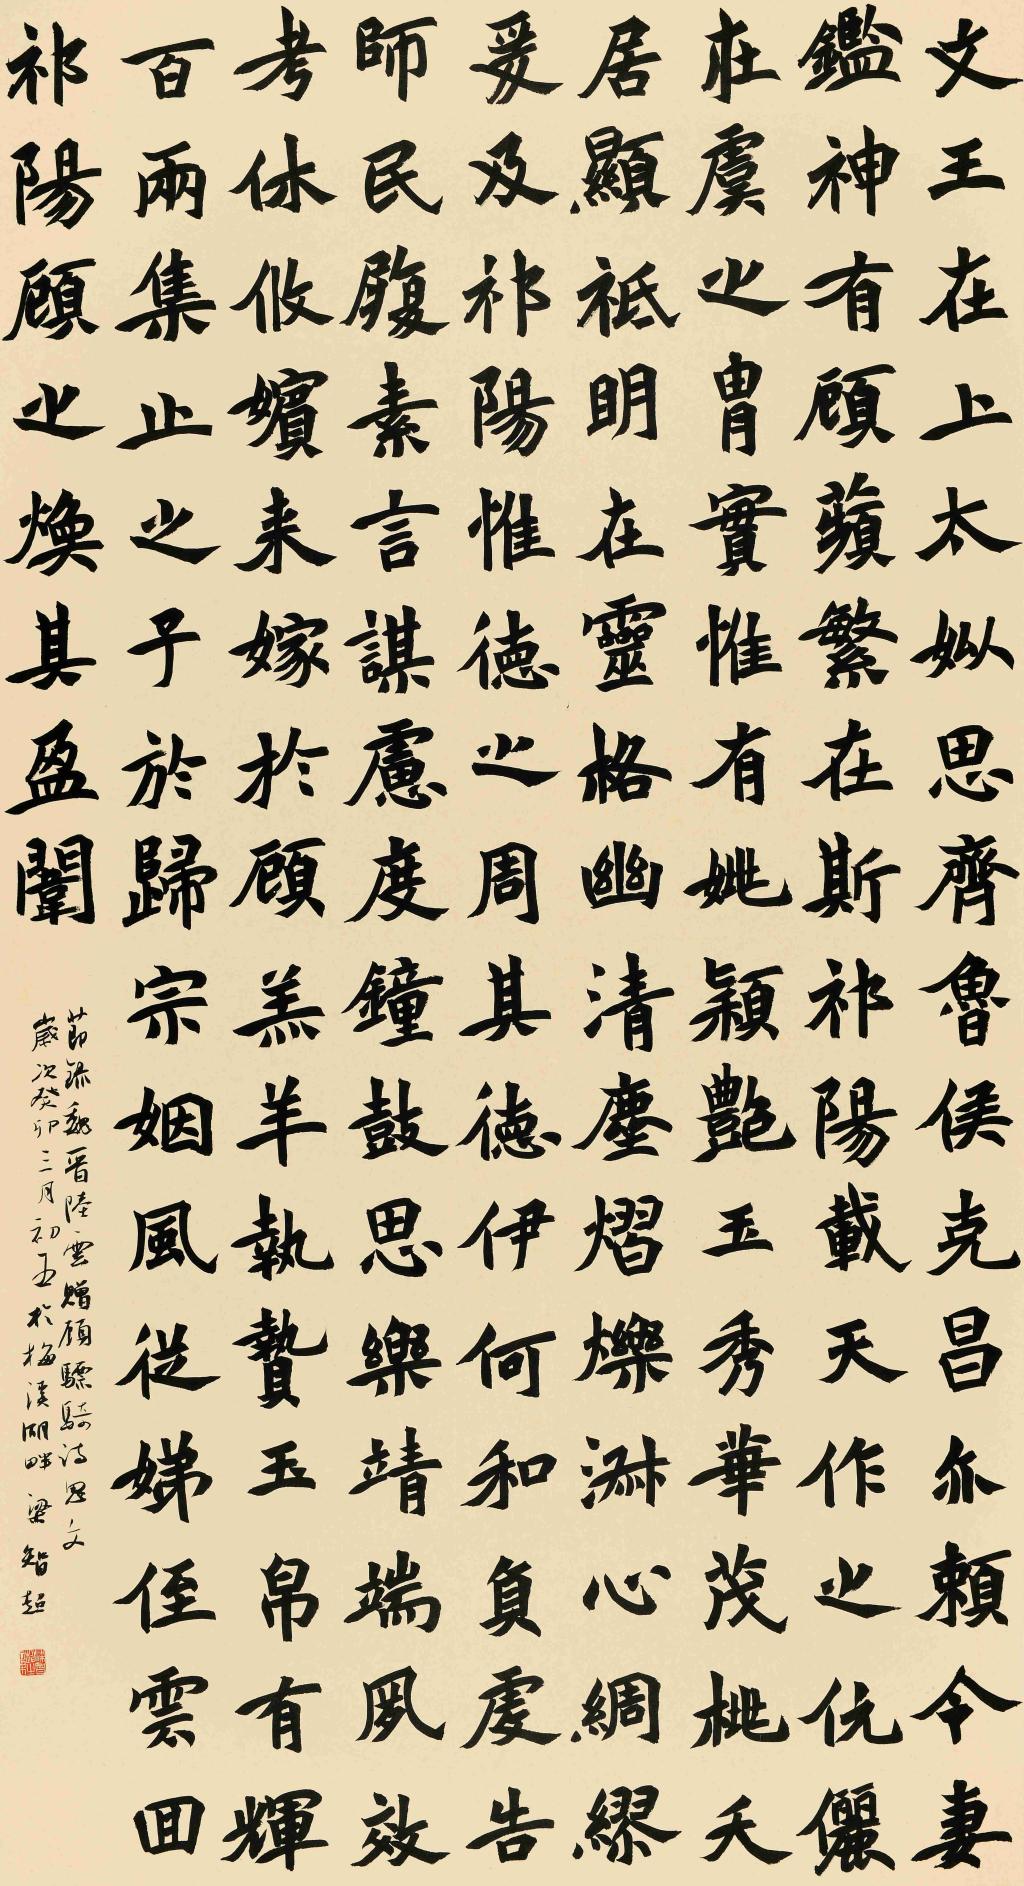 文王在上太姒思齊魯侯克昌亦賴令妻
鑑神有顧蘋繁在斯祁陽載天作之伉儷
莊虞之胄實惟有姚穎艷玉秀華茂桃夭
居顯祗明在靈格幽清塵熠爍淋心綢繆
爰及祁陽惟德之周其德伊何和負處告
師民履素言謀慮度鐘鼓思樂靖端夙效
考休攸嬪来嫁於顧羔羊執贄玉帛有輝
百兩集止之子於歸宗姻風從娣侄雲回
祁陽顧之煥其盈闈
節錄魏晋陸雲贈顧驃騎詩思文
歲次癸卯三月初五於梅溪湖畔梁智超